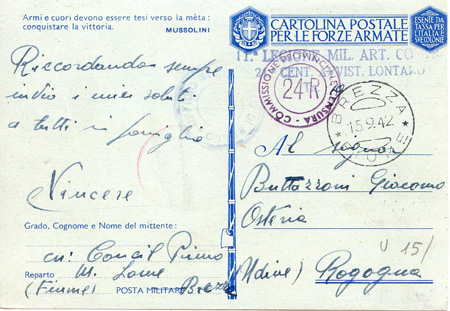 Armi e cuori devono essere tesi verso la mèta:
conquistare la vittoria.
MUSSOLINI
Riccordando sempre
invio i miei saluti
a tutti in famiglia
Vincere
Grado, Cognome e Nome del mittente:
Primo
Reparto M.
(Fiume) POSTA MILITARE
CARTOLINA POSTALE
PER LE FORZE ARMATE
ESENTE DA
TASSA PER
L'ITALIA E
SUE COLONIE
LEGIONE MIL. ART. CO
CENT. VIST. LONTANO
COMMISSIONE PROVINCIALE CENSURA
24 R
BREZZA
15.9.42
Al signor
Buttazzoni Giacomo
Osteria
15/
(Udine) Rogogna